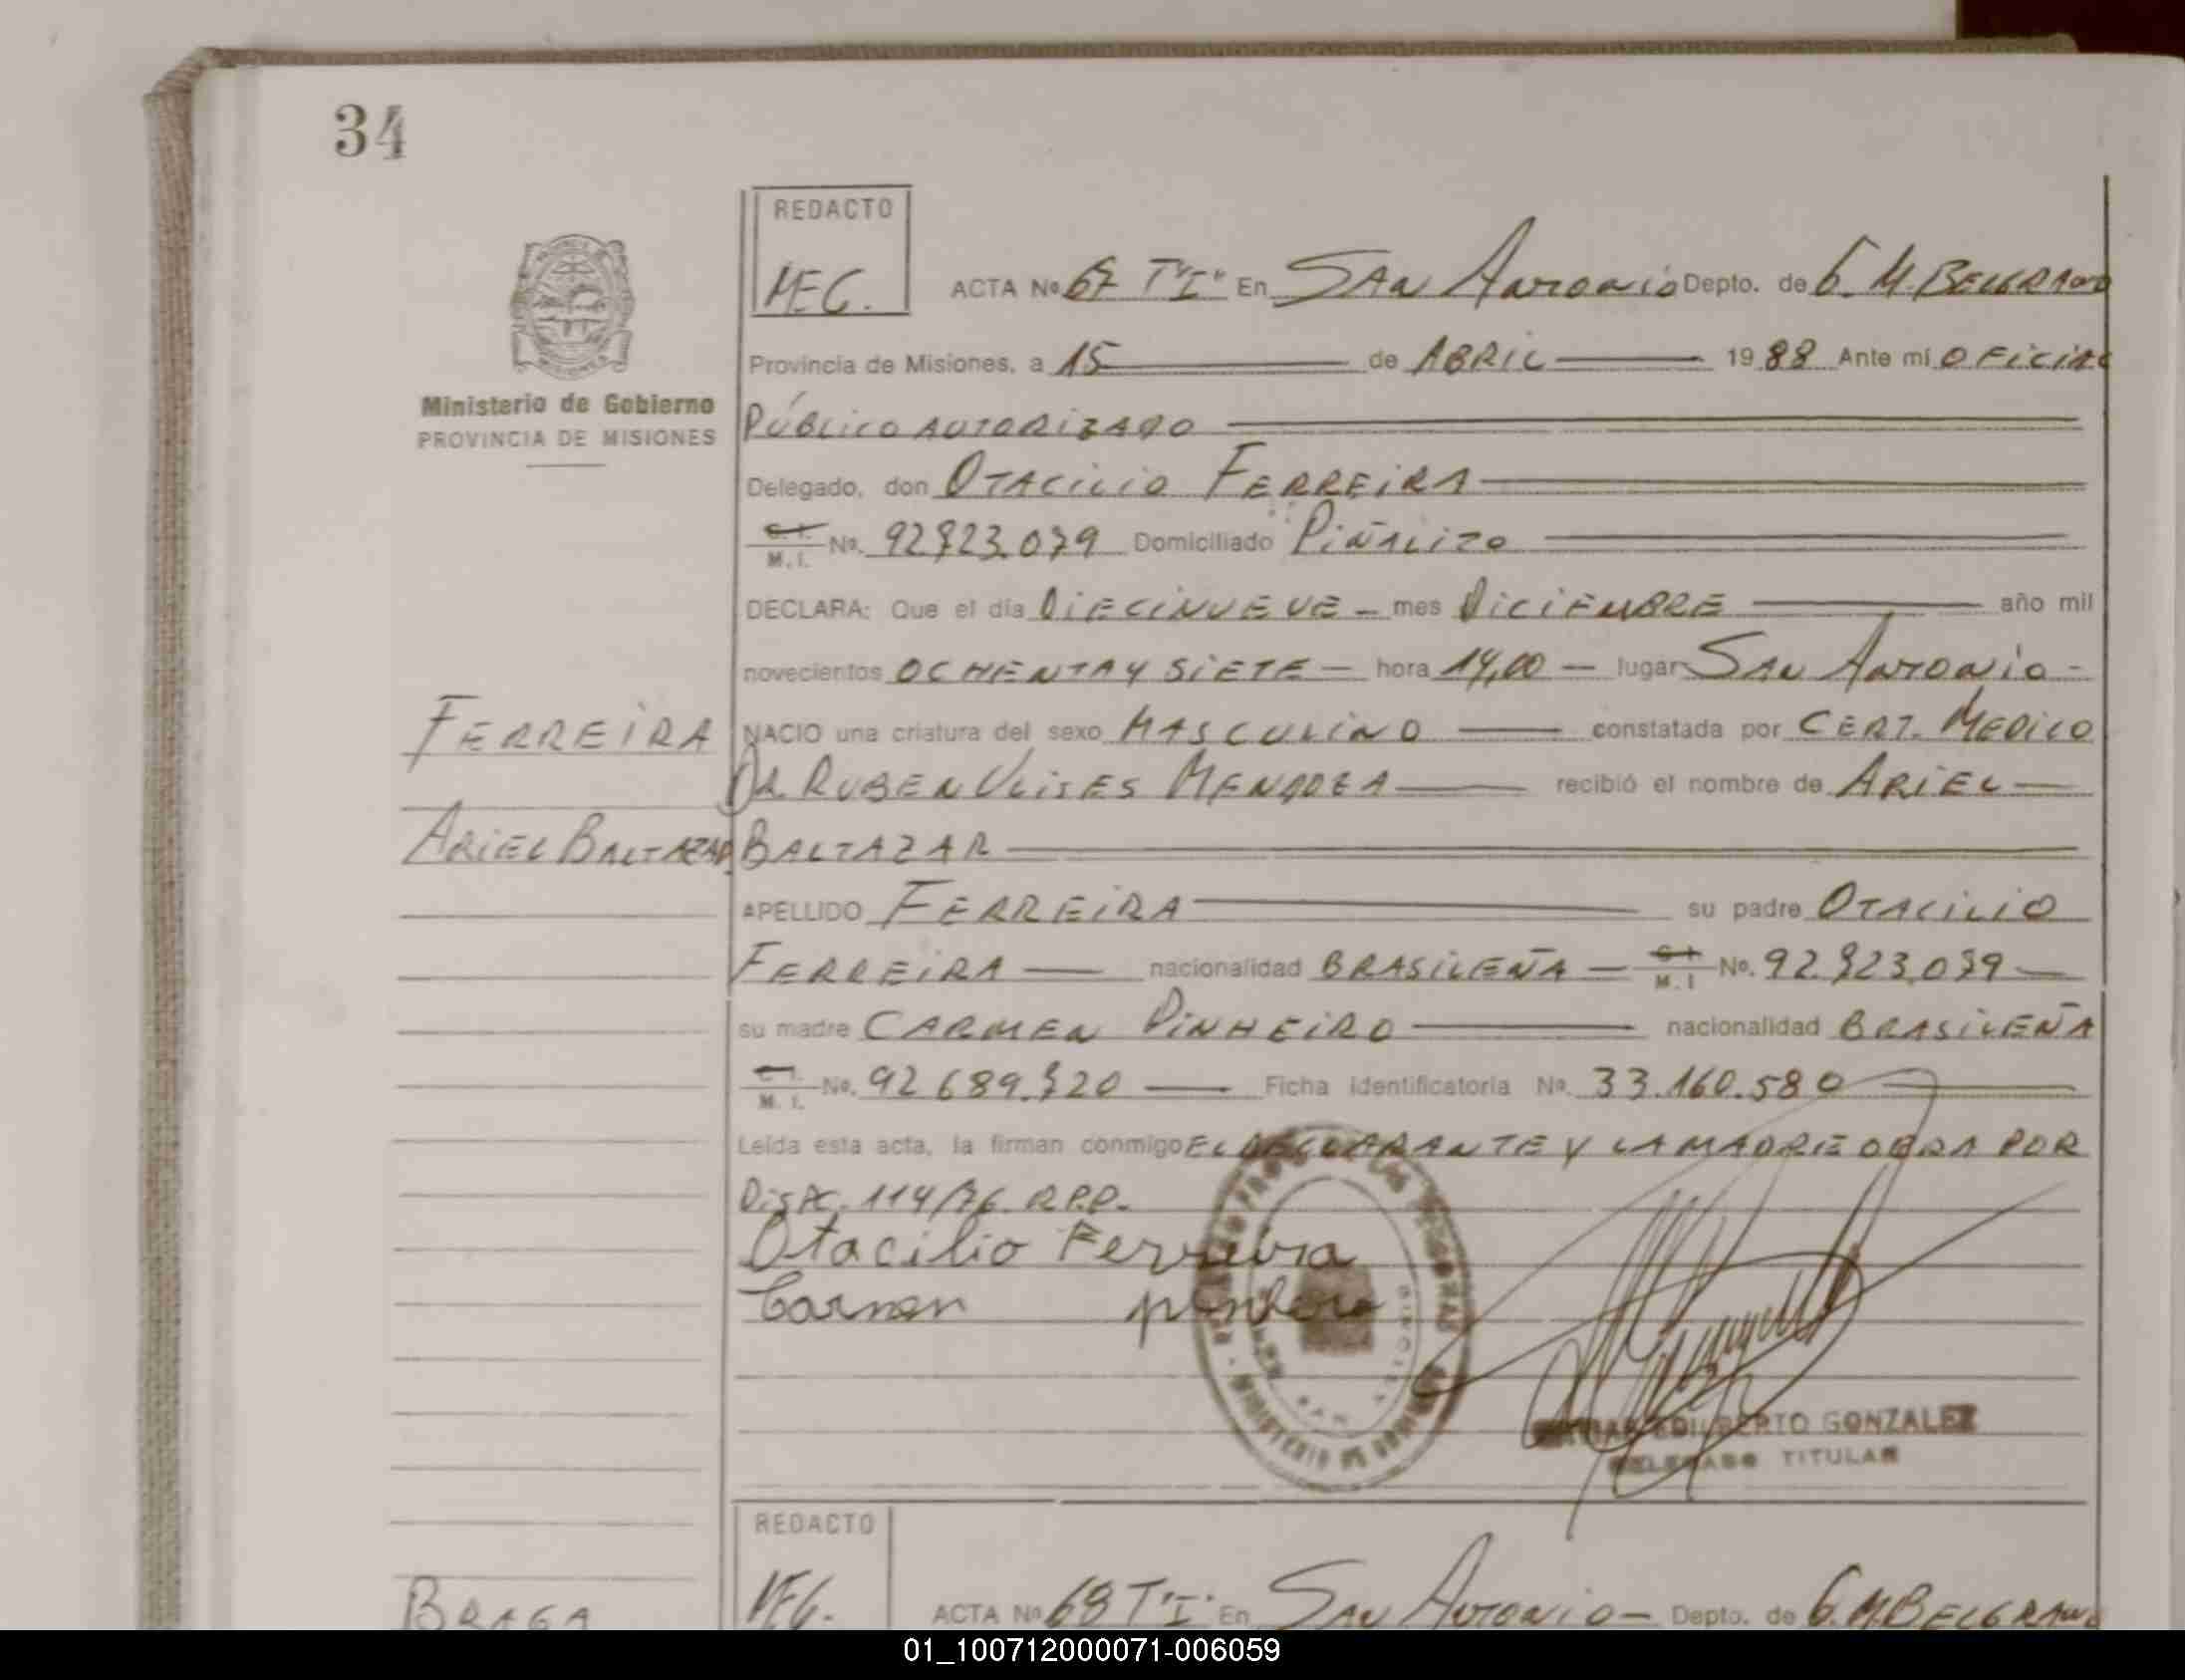 34
REDACTO
MEG.
ACTA No 67 T"I" En SAN ANTONIO Depto. de G. M. BELGRANO
Ministerio de Gobierno
PROVINCIA DE MISIONES
Provincia de Misiones, a 15 de ABRIL 1988 Ante mí OFICIAL
PÚBLICO AUTORIZADO
Delegado, don OTACILIO FERREIRA
C.I. M.I. No. 92723.079 Domiciliado PIÑALITO
DECLARA: Que el día DIECINUEVE - mes DICIEMBRE año mil
novecientos OCHENTA Y SIETE - hora 14,00 - lugar SAN ANTONIO -
FERREIRA
NACIO una criatura del sexo MASCULINO constatada por CERT. MEDICO
DR. RUBEN ULISES MENDOZA recibió el nombre de ARIEL
ARIEL BALTAZAR
BALTAZAR
APELLIDO FERREIRA su padre OTACILIO
FERREIRA nacionalidad BRASILEÑA - C.I. M.I No. 92.723.079
su madre CARMEN PINHEIRO nacionalidad BRASILEÑA
C.I. M.I. No. 92 689.720 Ficha identificatoria No. 33.160.580
Leída esta acta, la firman conmigo EL DECLARANTE Y LA MADRE OBRA POR
DISPC. 114/76. R.P.P.
Otacilio Ferreira
Carmen pinheiro
EDILBERTO GONZALEZ
DELEGADO TITULAR
REDACTO
MEG.
BRAGA
ACTA No 68 T"I" En SAN ANTONIO - Depto. de G. M. BELGRANO
01_100712000071-006059